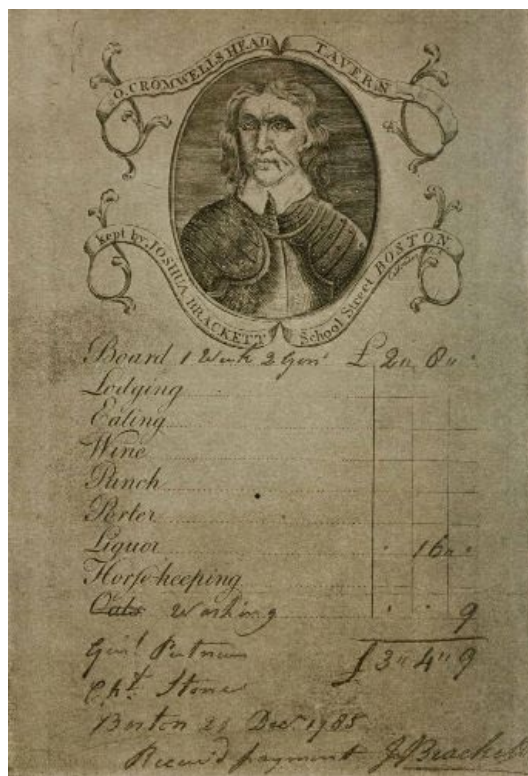 O. CROMWELLS HEAD TAVERN
kept by JOSHUA BRACKETT School Street BOSTON
Board 1 Week 2 Gen.l £ 2 " 8 "
Lodging
Eating
Wine
Punch
Porter
Liquor 16 "
Horse-keeping
Oats Washing 9
Gen.l Putnam £3 " 4 " 9
Stone
Boston Dec.r 1785
Received payment J Brackett